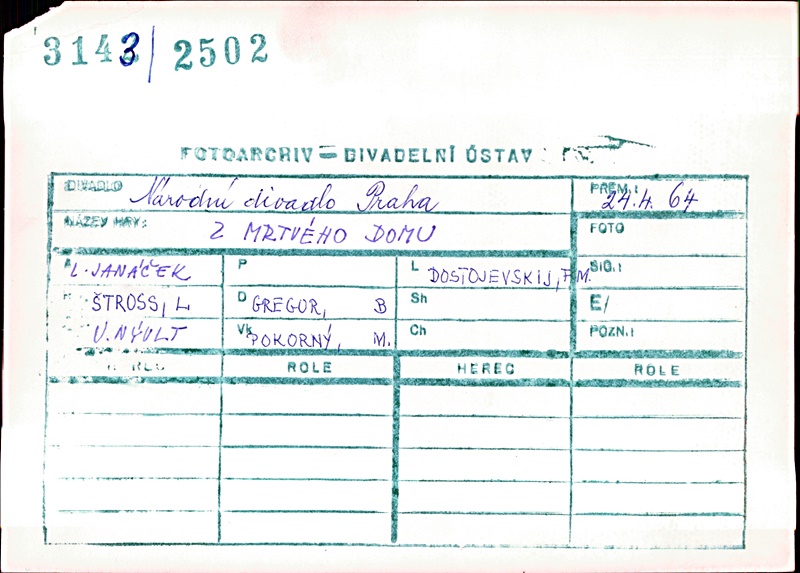 3143/2502
FOTOARCHIV – DIVADELNÍ ÚSTAV
DIVADLO Národní divadlo Praha PREM.: 24.4. 64
NÁZEV HRY: Z MRTVÉHO DOMU FOTO
A L. JANÁČEK P L DOSTOJEVSKIJ, F.M. SIG.:
R ŠTROSS, L D GREGOR, B Sh E/
V. NÝVLT Vk POKORNÝ, M. Ch POZN.:
HEREC ROLE HEREC ROLE